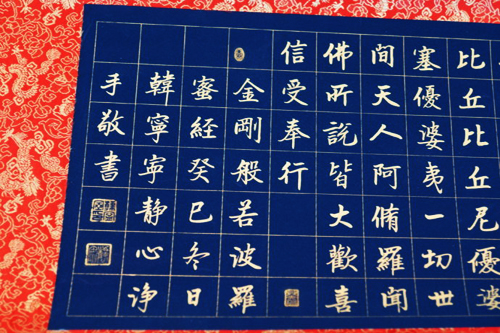 比丘比丘尼優婆
塞優婆夷一切世
間天人阿脩羅聞
佛所說皆大歡喜
信受奉行
金剛般若波羅
蜜經癸巳冬日
韓寧寧靜心淨
手敬書